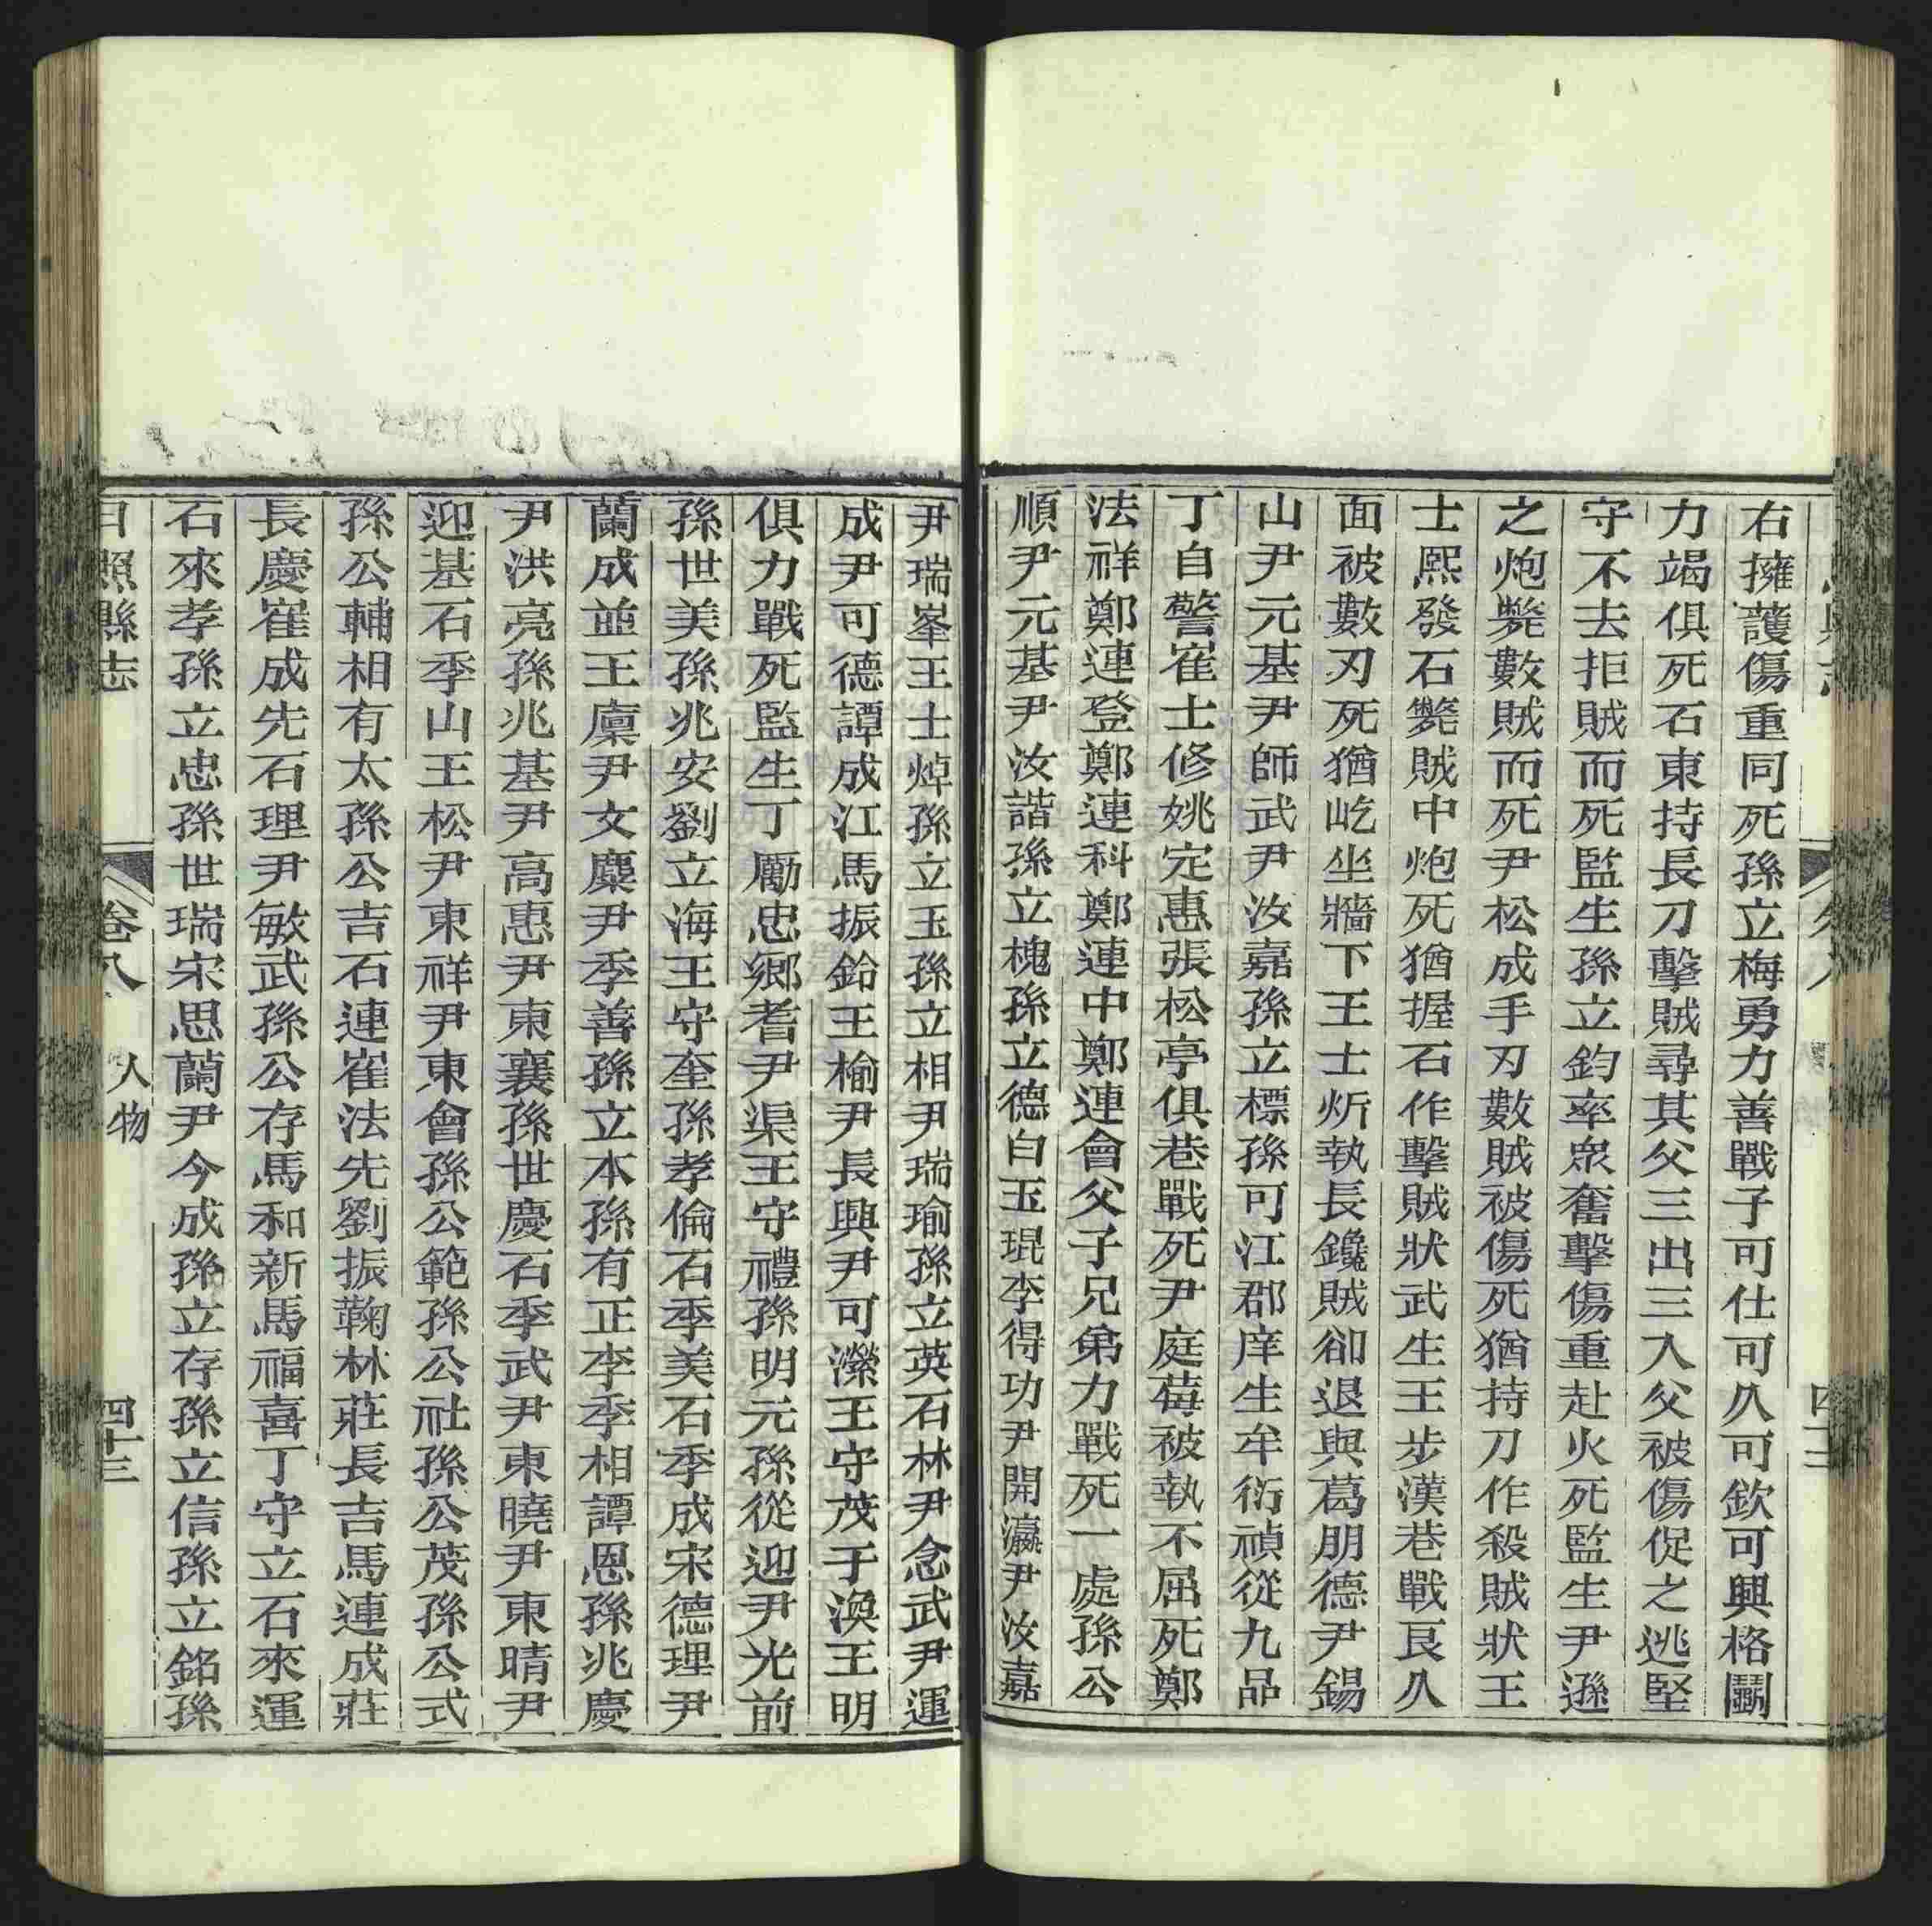 右擁護傷重同死孫立梅勇力善戰子可仕可久可欽可興格鬭
力竭俱死石東持長刀擊賊尋其父三出三入父被傷促之逃堅
守不去拒賊而死監生孫立鈞率眾奮擊傷重赴火死監生尹遜
之炮斃數賊而死尹松成手刃數賊被傷死猶持刀作殺賊狀王
士熙發石斃賊中炮死猶握石作擊賊狀武生王步漢巷戰良久
面被數刃死猶屹坐牆下王士炘執長鑱賊卻退與葛朋德尹錫
山尹元基尹師武尹汝嘉孫立標孫可江郡庠生牟衍禎從九品
丁自警崔士修姚定惠張松亭俱巷戰死尹庭莓被執不屈死鄭
法祥鄭連登鄭連科鄭連中鄭連會父子兄弟力戰死一處孫公
順尹元基尹汝諧孫立槐孫立德白玉琨李得功尹開瀛尹汝嘉
尹瑞峯王士焯孫立玉孫立相尹瑞瑜孫立英石林尹念武尹運
成尹可德譚成江馬振鈴王榆尹長興尹可濚王守茂于渙王明
俱力戰死監生丁勵忠鄉耆尹渠王守禮孫明元孫從迎尹光前
孫世美孫兆安劉立海王守奎孫孝倫石季美石季成宋德理尹
蘭成並王廩尹文麋尹季善孫立本孫有正李季相譚恩孫兆慶
尹洪亮孫兆基尹高惠尹東襄孫世慶石季武尹東曉尹東晴尹
迎基石季山王松尹東祥尹東會孫公範孫公社孫公茂孫公式
孫公輔相有太孫公吉石連崔法先劉振鞠林莊長吉馬連成莊
長慶崔成先石理尹敏武孫公存馬和新馬福喜丁守立石來運
石來孝孫立忠孫世瑞宋思蘭尹今成孫立存孫立信孫立銘孫
日照縣志 卷八 人物 四十三